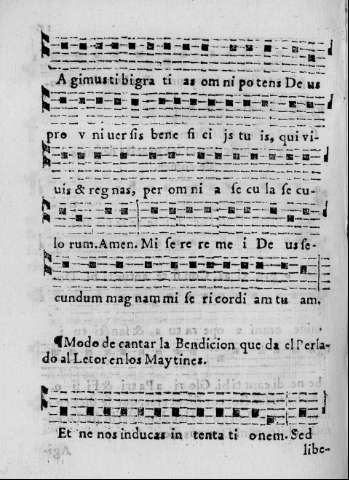 A gimus ti bi gra ti as om ni po tens De us
pro v ni uer sis bene fi ci js tu is, qui vi-
uis & reg nas, per om ni a se cu la se cu-
lo rum. Amen. Mi se re re me i De us se-
cundum mag nam mi se ri cordi am tu am.
¶Modo de cantar la Bendicion que da el Perla-
do al Letor en los Maytines.
Et ne nos inducas in tenta ti onem. Sed
libe-